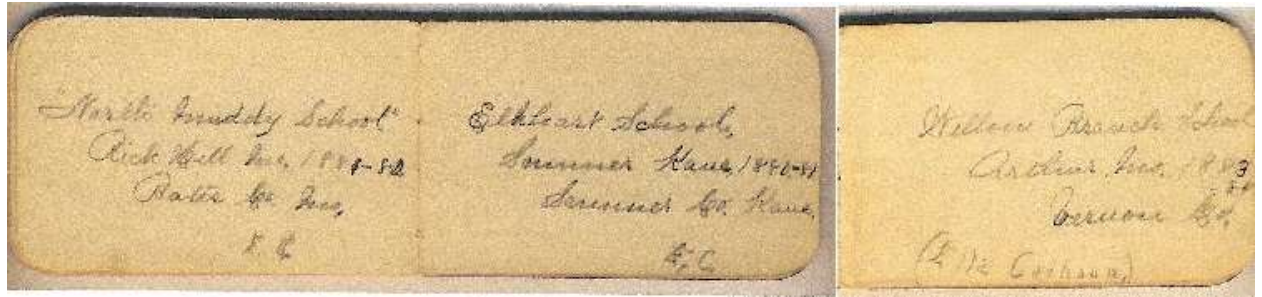 "North Muddy School"
Rich Hill Mo, 188
Bates Co Mo,
E. C.
Elkheart School,
Sumner Kans, 1880-81
Sumner Co. Kans,
E. C.
Willow Branch School
Arthur, Mo. 1883
Vernon Co.
Cochran)